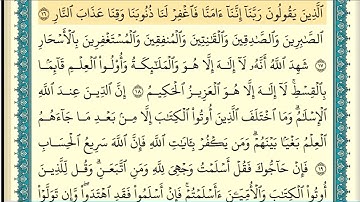 ٱلَّذِينَ يَقُولُونَ رَبَّنَآ إِنَّنَآ ءَامَنَّا فَٱغْفِرْ لَنَا ذُنُوبَنَا وَقِنَا عَذَابَ ٱلنَّارِ ١٦
ٱلصَّٰبِرِينَ وَٱلصَّٰدِقِينَ وَٱلْقَٰنِتِينَ وَٱلْمُنفِقِينَ وَٱلْمُسْتَغْفِرِينَ بِٱلْأَسْحَارِ
١٧ شَهِدَ ٱللَّهُ أَنَّهُۥ لَآ إِلَٰهَ إِلَّا هُوَ وَٱلْمَلَٰٓئِكَةُ وَأُو۟لُوا۟ ٱلْعِلْمِ قَآئِمًۢا
بِٱلْقِسْطِ لَآ إِلَٰهَ إِلَّا هُوَ ٱلْعَزِيزُ ٱلْحَكِيمُ ١٨ إِنَّ ٱلدِّينَ عِندَ ٱللَّهِ
ٱلْإِسْلَٰمُ وَمَا ٱخْتَلَفَ ٱلَّذِينَ أُوتُوا۟ ٱلْكِتَٰبَ إِلَّا مِنۢ بَعْدِ مَا جَآءَهُمُ
ٱلْعِلْمُ بَغْيًۢا بَيْنَهُمْ وَمَن يَكْفُرْ بِـَٔايَٰتِ ٱللَّهِ فَإِنَّ ٱللَّهَ سَرِيعُ ٱلْحِسَابِ
١٩ فَإِنْ حَآجُّوكَ فَقُلْ أَسْلَمْتُ وَجْهِىَ لِلَّهِ وَمَنِ ٱتَّبَعَنِ وَقُل لِّلَّذِينَ
أُوتُوا۟ ٱلْكِتَٰبَ وَٱلْأُمِّيِّـۧنَ ءَأَسْلَمْتُمْ فَإِنْ أَسْلَمُوا۟ فَقَدِ ٱهْتَدَوا۟ وَّإِن تَوَلَّوْا۟